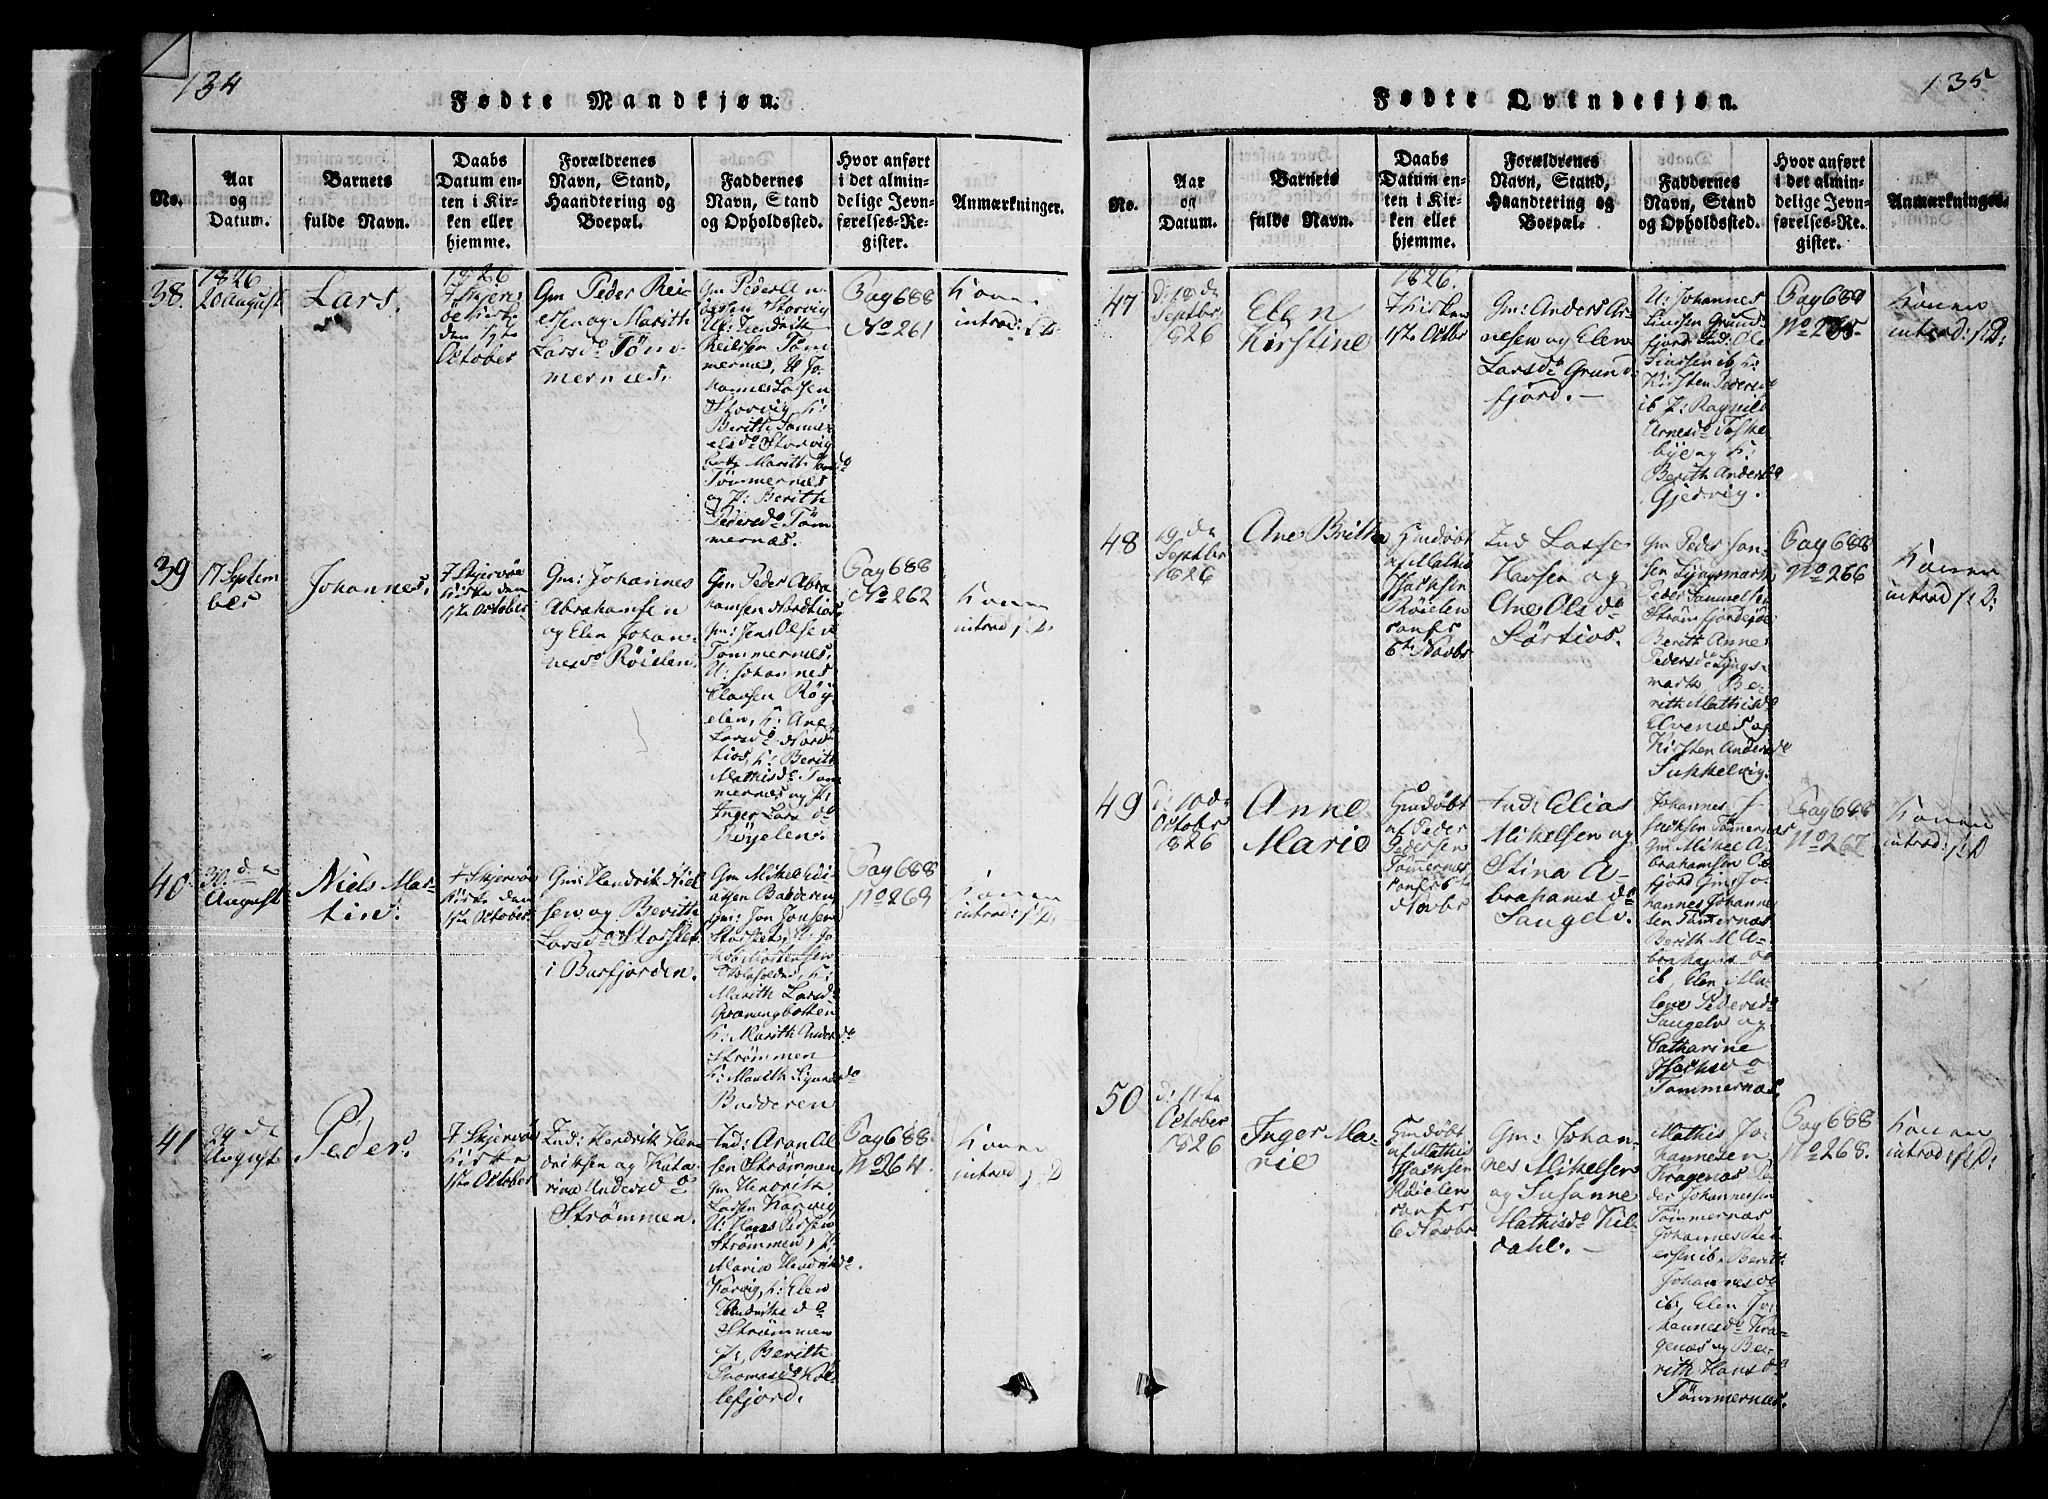 134
Fødte Mandkjøn.
No.
Aar
og
Datum.
Barnets
fulde Navn.
Daabs
Datum en-
ten i Kir-
ken eller
hjemme.
Forældrenes
Navn, Stand,
Haandtering og
Boepæl.
Faddernes
Navn, Stand
og Opholdssted.
Hvor anført
i det almin-
delige Jevn-
førelses-Re-
gister.
Anmærkninger.
38.
1826
20 August
Lars.
1826
den 1ste
October
Gm Peder Rei-
ersen og Marith
Larsdr Töm-
mernes.
Storvig
Um: Hendrik
Töm-
mernes, U Jo-
hannes Larsen
Storvig, k:
Berith
Storvig
Marith
Tömmernes
og p: Berith
Pedersdr Töm-
mernæs.
Pag 688
No 261
Konen
introd: p: D:
39
17 Septem
ber
Johannes.
I Skjervöe
Kirke den
1ste October
Gm: Johannes
Abrahamsen
og Elen Johan-
nesdr Röielen.
Gm Peder Abra
hamsen
Gm: Jens Olsen
Tommernes,
U: Johannes
Clausen Röy-
elen, k: Ane
Larsdr Nord
tios, k: Berith
Mathisdr Tom
mernes og p:
Inger Lars dr
Röyelen.
Pag 688
No 262
Konen
introd p: D:
40
30. de
August
Niels Mar-
tin.
I Skjervöe
Kirke den
1ste October
Gm: Hendrik Niel
sen og Berith
Larsdr Storslet
i Burfjorden.
Gm Mikel
Badderen
Gm: Jon Jonsen
Storslet, U: Jo
Mortensen
k:
Marith Larsdr
k: Marith Anders dr
Strömmen
k: Marith
Badderen
Pag 688
No 263
Konen
introd: p: D:
41
24 de
August
Peder.
I Skjervöe
Kirke
1ste October
Ind: Hendrik Hen
driksen og Kata
rina Andersdr
Strömmen.
Ind: Aron Ol
sen Strömmen,
Gm Hendrik
Larsen Korvig
U: Hans Persen
Strömmen, p:
Maria Hendriksdr
Korvig, k: Elen
Hendriks dr
Strömmen
p: Berith
Thomasdr Kol-
lefjord.
Pag 688.
No 264.
Konen
introd: p: D
135
Fødte Qvindekjøn.
No.
Aar
og
Datum.
Barnets
fulde Navn.
Daabs
Datum en-
ten i Kir-
ken eller
hjemme.
Forældrenes
Navn, Stand,
Haandtering og
Boepæl.
Faddernes
Navn, Stand
og Opholdssted.
Hvor anført
i det almin-
delige Jevn-
førelses-Re-
gister.
Anmærkninger.
47
d: 18 de
Septbr
1826
Elen
Kirstine
1826.
I Kirken
1ste Octbr
Gm: Anders Ar-
nesen og Elen
Larsdr Grund
fjord. —
U: Johannes
Grund-
fjord, Ind: Ole
ib, k:
Kirsten Pedersdr
ib p: Ragnild
Arnesdr
og k:
Berith Andersdr
Gjedvig.
Pag 688
No 265.
Konen
introd: p: D:
48
19 de
Septbr
1826
Ane Brith
Gmdöbt
af Mathis
Isachsen
Röielen
confr
6te Novbr
Ind Lasse
Hansen og
Ane Ols dr
Sörtios.
Gm Peder Jon-
sen Lyngsmark
Peder Samuelsen
Strömfjord
Berith Annes
Pedersdr Lyngs-
mark Be-
rith Mathisdr
Elvenæs og
Kirsten Andersdr
Sukkelvig.
Pag 688
No 266
Konen
introd p: D:
49
d: 10 de
Octobr
1826
Anne
Marie
Gmdöbt
af Peder
Pedersen
Tömmernes
confr 6te
Novbr
Ind: Elias
Mikelsen og
Stina A-
brahams dr
Sangelv.
Johannes I-
sachsen Tömernæs
Gm Mikel A-
brahamsen
fjord Gm: Jo-
hannes Johanne
sen Tömernæs
Berith M A-
brahamsdr
ib, Elen Ma-
lene Pedersdr
Sangelv og
Catharine
Isachsdr
Tommernæs.
Pag 688
No 267
Konen
introd: p: D
50
d: 11te
October
1826
Inger Ma-
rie
Gmdöbt
af Mathis
Isachsen
Röielen
confr
6 Novbr
Gm: Johan-
nes Mikelsen
og Susanne
Mathisdr Kil-
dahl. —
Mathis Jo-
hannesen
Kragenæs Pe-
der Johannesen
Tömmernæs
Johannes
ib: Berith
Johannesdr
ib, Elen Jo-
hannesdr Kra-
genæs og Be-
rith Hansdr
Tömmernæs.
Pag 688
No 268.
Konen
introd: p: D: